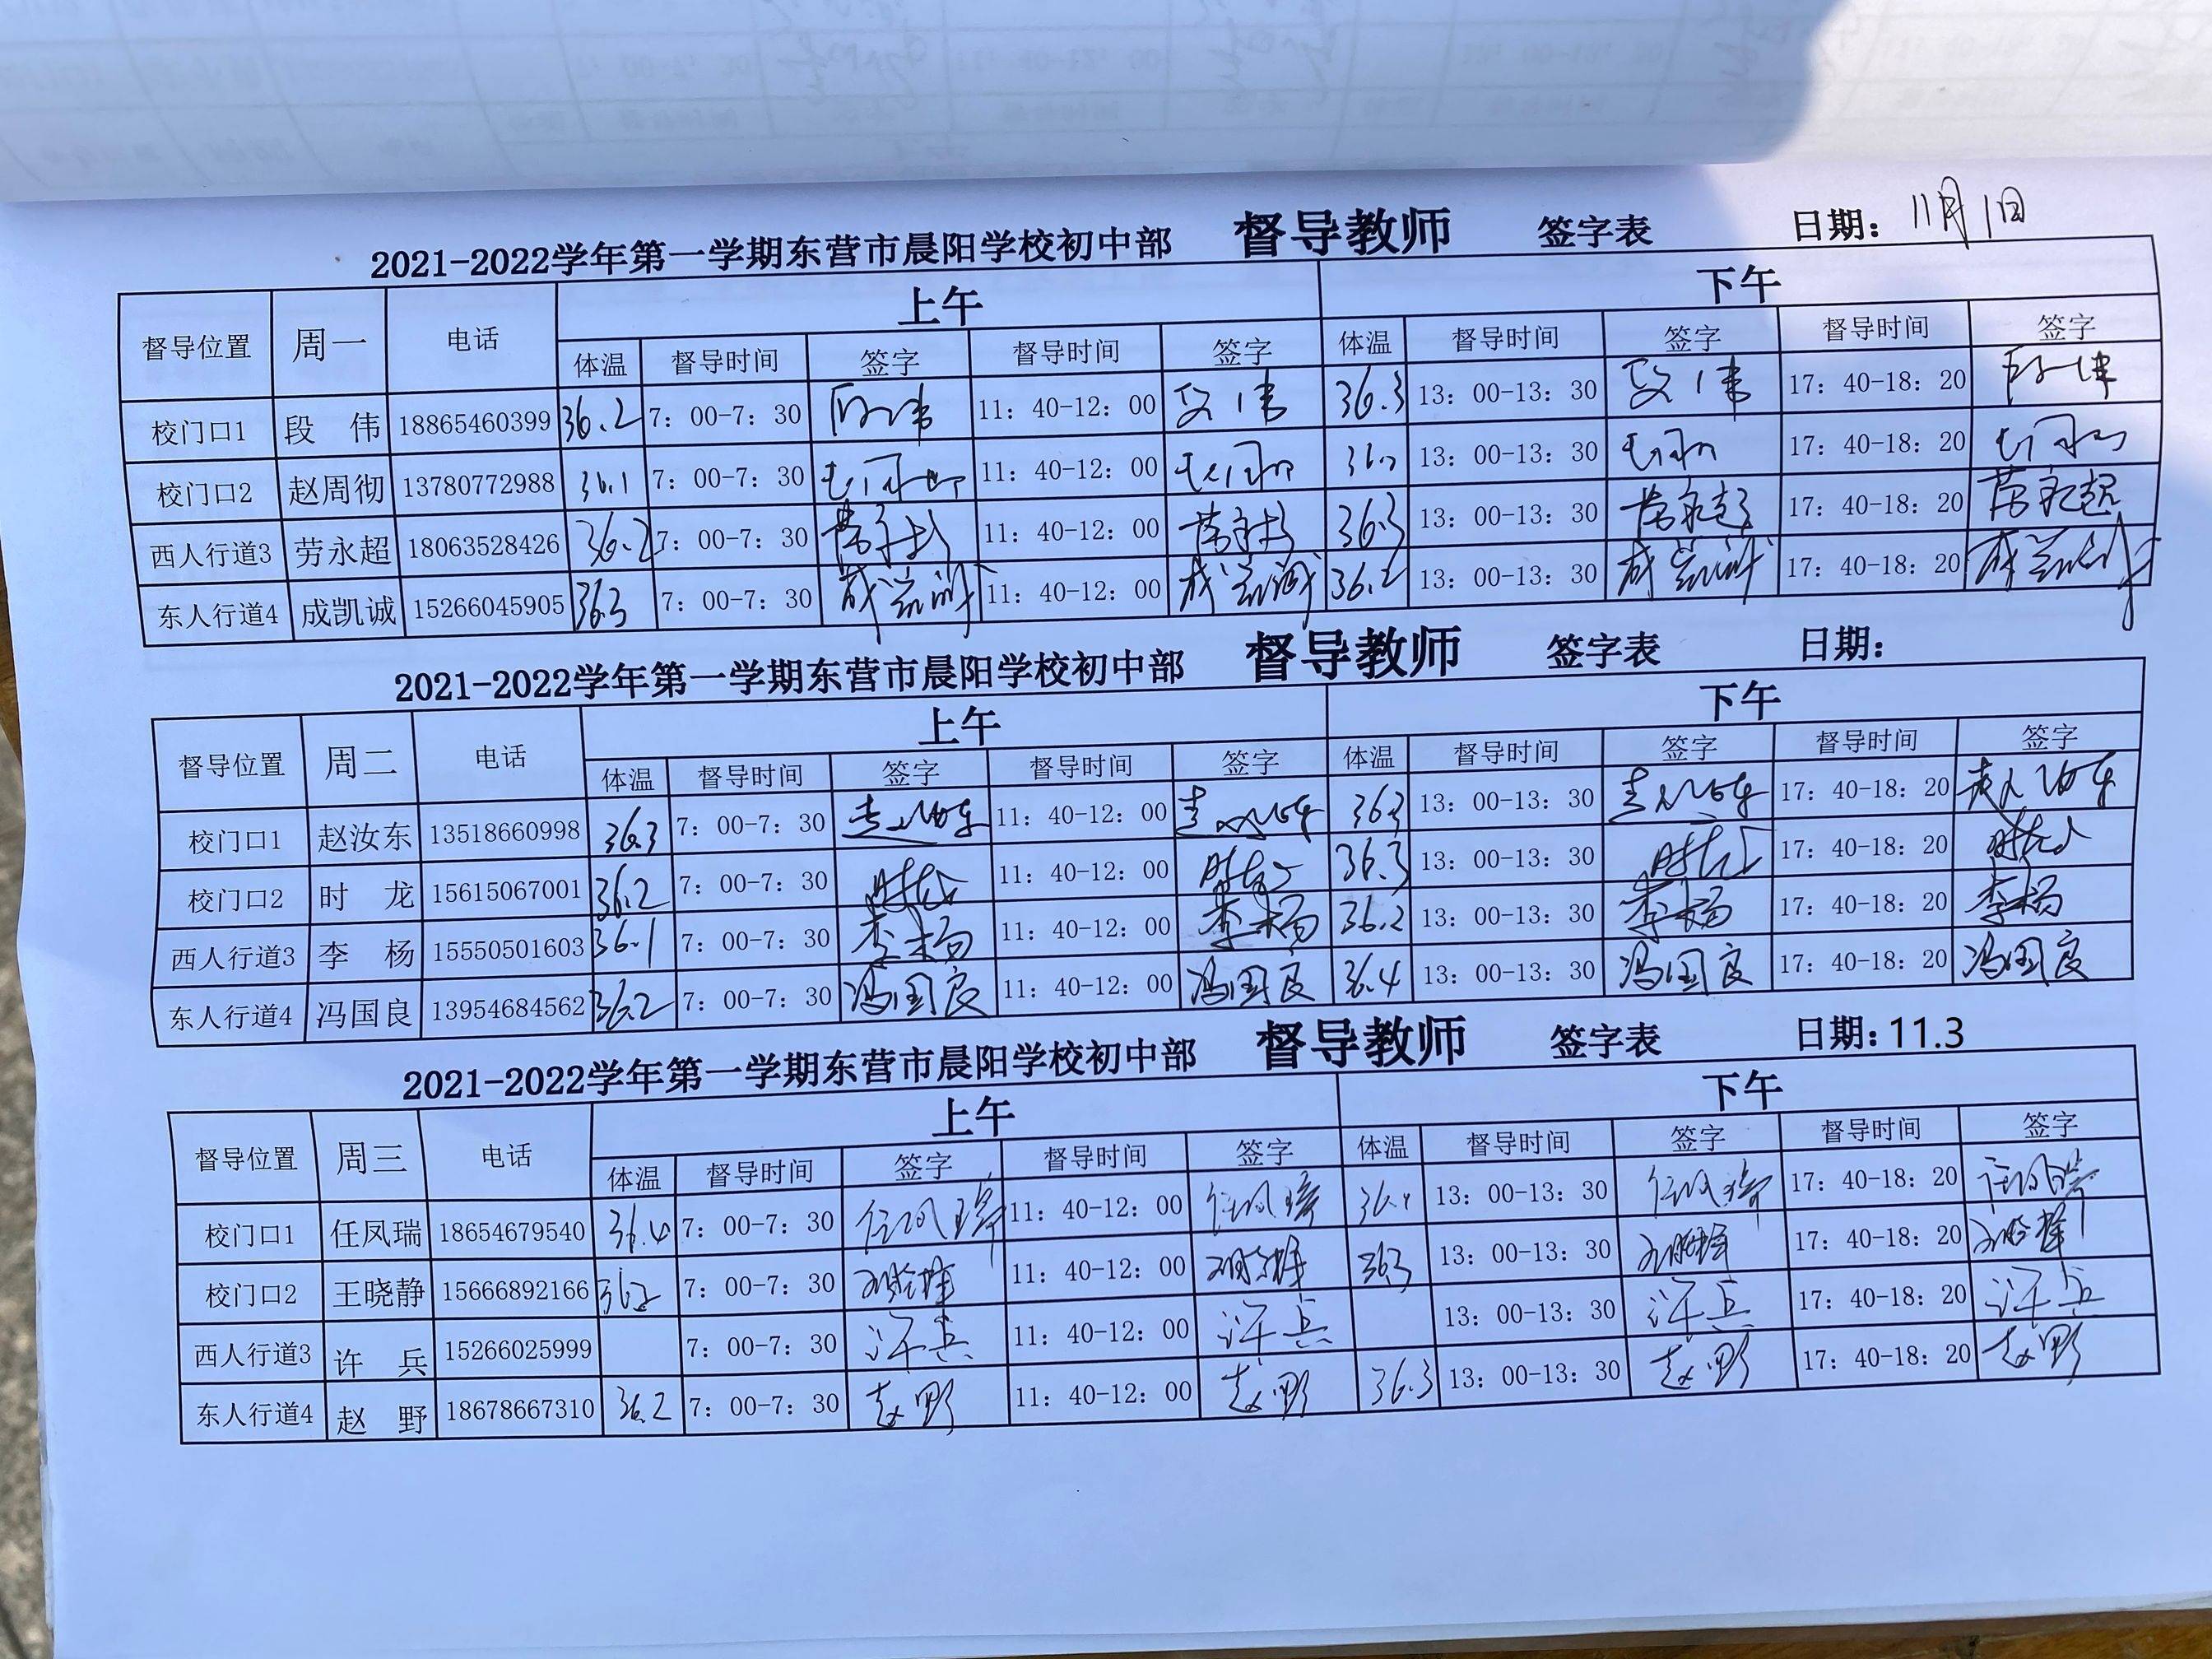 2021-2022学年第一学期东营市晨阳学校初中部 督导教师 签字表 日期：11月1日
督导位置 周一 电话 上午 下午
体温 督导时间 签字 督导时间 签字 体温 督导时间 签字 督导时间 签字
校门口1 段 伟 18865460399 36.2 7：00-7：30 段伟 11：40-12：00 段伟 36.3 13：00-13：30 段伟 17：40-18：20 段伟
校门口2 赵周彻 13780772988 36.1 7：00-7：30 11：40-12：00 13：00-13：30 17：40-18：20
西人行道3 劳永超 18063528426 36.2 7：00-7：30 劳永超 11：40-12：00 劳永超 36.3 13：00-13：30 劳永超 17：40-18：20 劳永超
东人行道4 成凯诚 15266045905 36.3 7：00-7：30 成凯诚 11：40-12：00 成凯诚 36.2 13：00-13：30 成凯诚 17：40-18：20 成凯诚
2021-2022学年第一学期东营市晨阳学校初中部 督导教师 签字表 日期：
督导位置 周二 电话 上午 下午
体温 督导时间 签字 督导时间 签字 体温 督导时间 签字 督导时间 签字
校门口1 赵汝东 13518660998 36.3 7：00-7：30 赵汝东 11：40-12：00 赵汝东 36.3 13：00-13：30 赵汝东 17：40-18：20 赵汝东
校门口2 时 龙 15615067001 36.2 7：00-7：30 时龙 11：40-12：00 时龙 36.3 13：00-13：30 时龙 17：40-18：20 时龙
西人行道3 李 杨 15550501603 36.1 7：00-7：30 李杨 11：40-12：00 李杨 36.2 13：00-13：30 李杨 17：40-18：20 李杨
东人行道4 冯国良 13954684562 36.2 7：00-7：30 冯国良 11：40-12：00 冯国良 36.4 13：00-13：30 冯国良 17：40-18：20 冯国良
2021-2022学年第一学期东营市晨阳学校初中部 督导教师 签字表 日期：11.3
督导位置 周三 电话 上午 下午
体温 督导时间 签字 督导时间 签字 体温 督导时间 签字 督导时间 签字
校门口1 任凤瑞 18654679540 36.4 7：00-7：30 任凤瑞 11：40-12：00 任凤瑞 13：00-13：30 任凤瑞 17：40-18：20 任凤瑞
校门口2 王晓静 15666892166 36.2 7：00-7：30 王晓静 11：40-12：00 王晓静 36.3 13：00-13：30 王晓静 17：40-18：20 王晓静
西人行道3 许 兵 15266025999 7：00-7：30 许兵 11：40-12：00 许兵 13：00-13：30 许兵 17：40-18：20 许兵
东人行道4 赵 野 18678667310 36.2 7：00-7：30 赵野 11：40-12：00 赵野 36.3 13：00-13：30 赵野 17：40-18：20 赵野